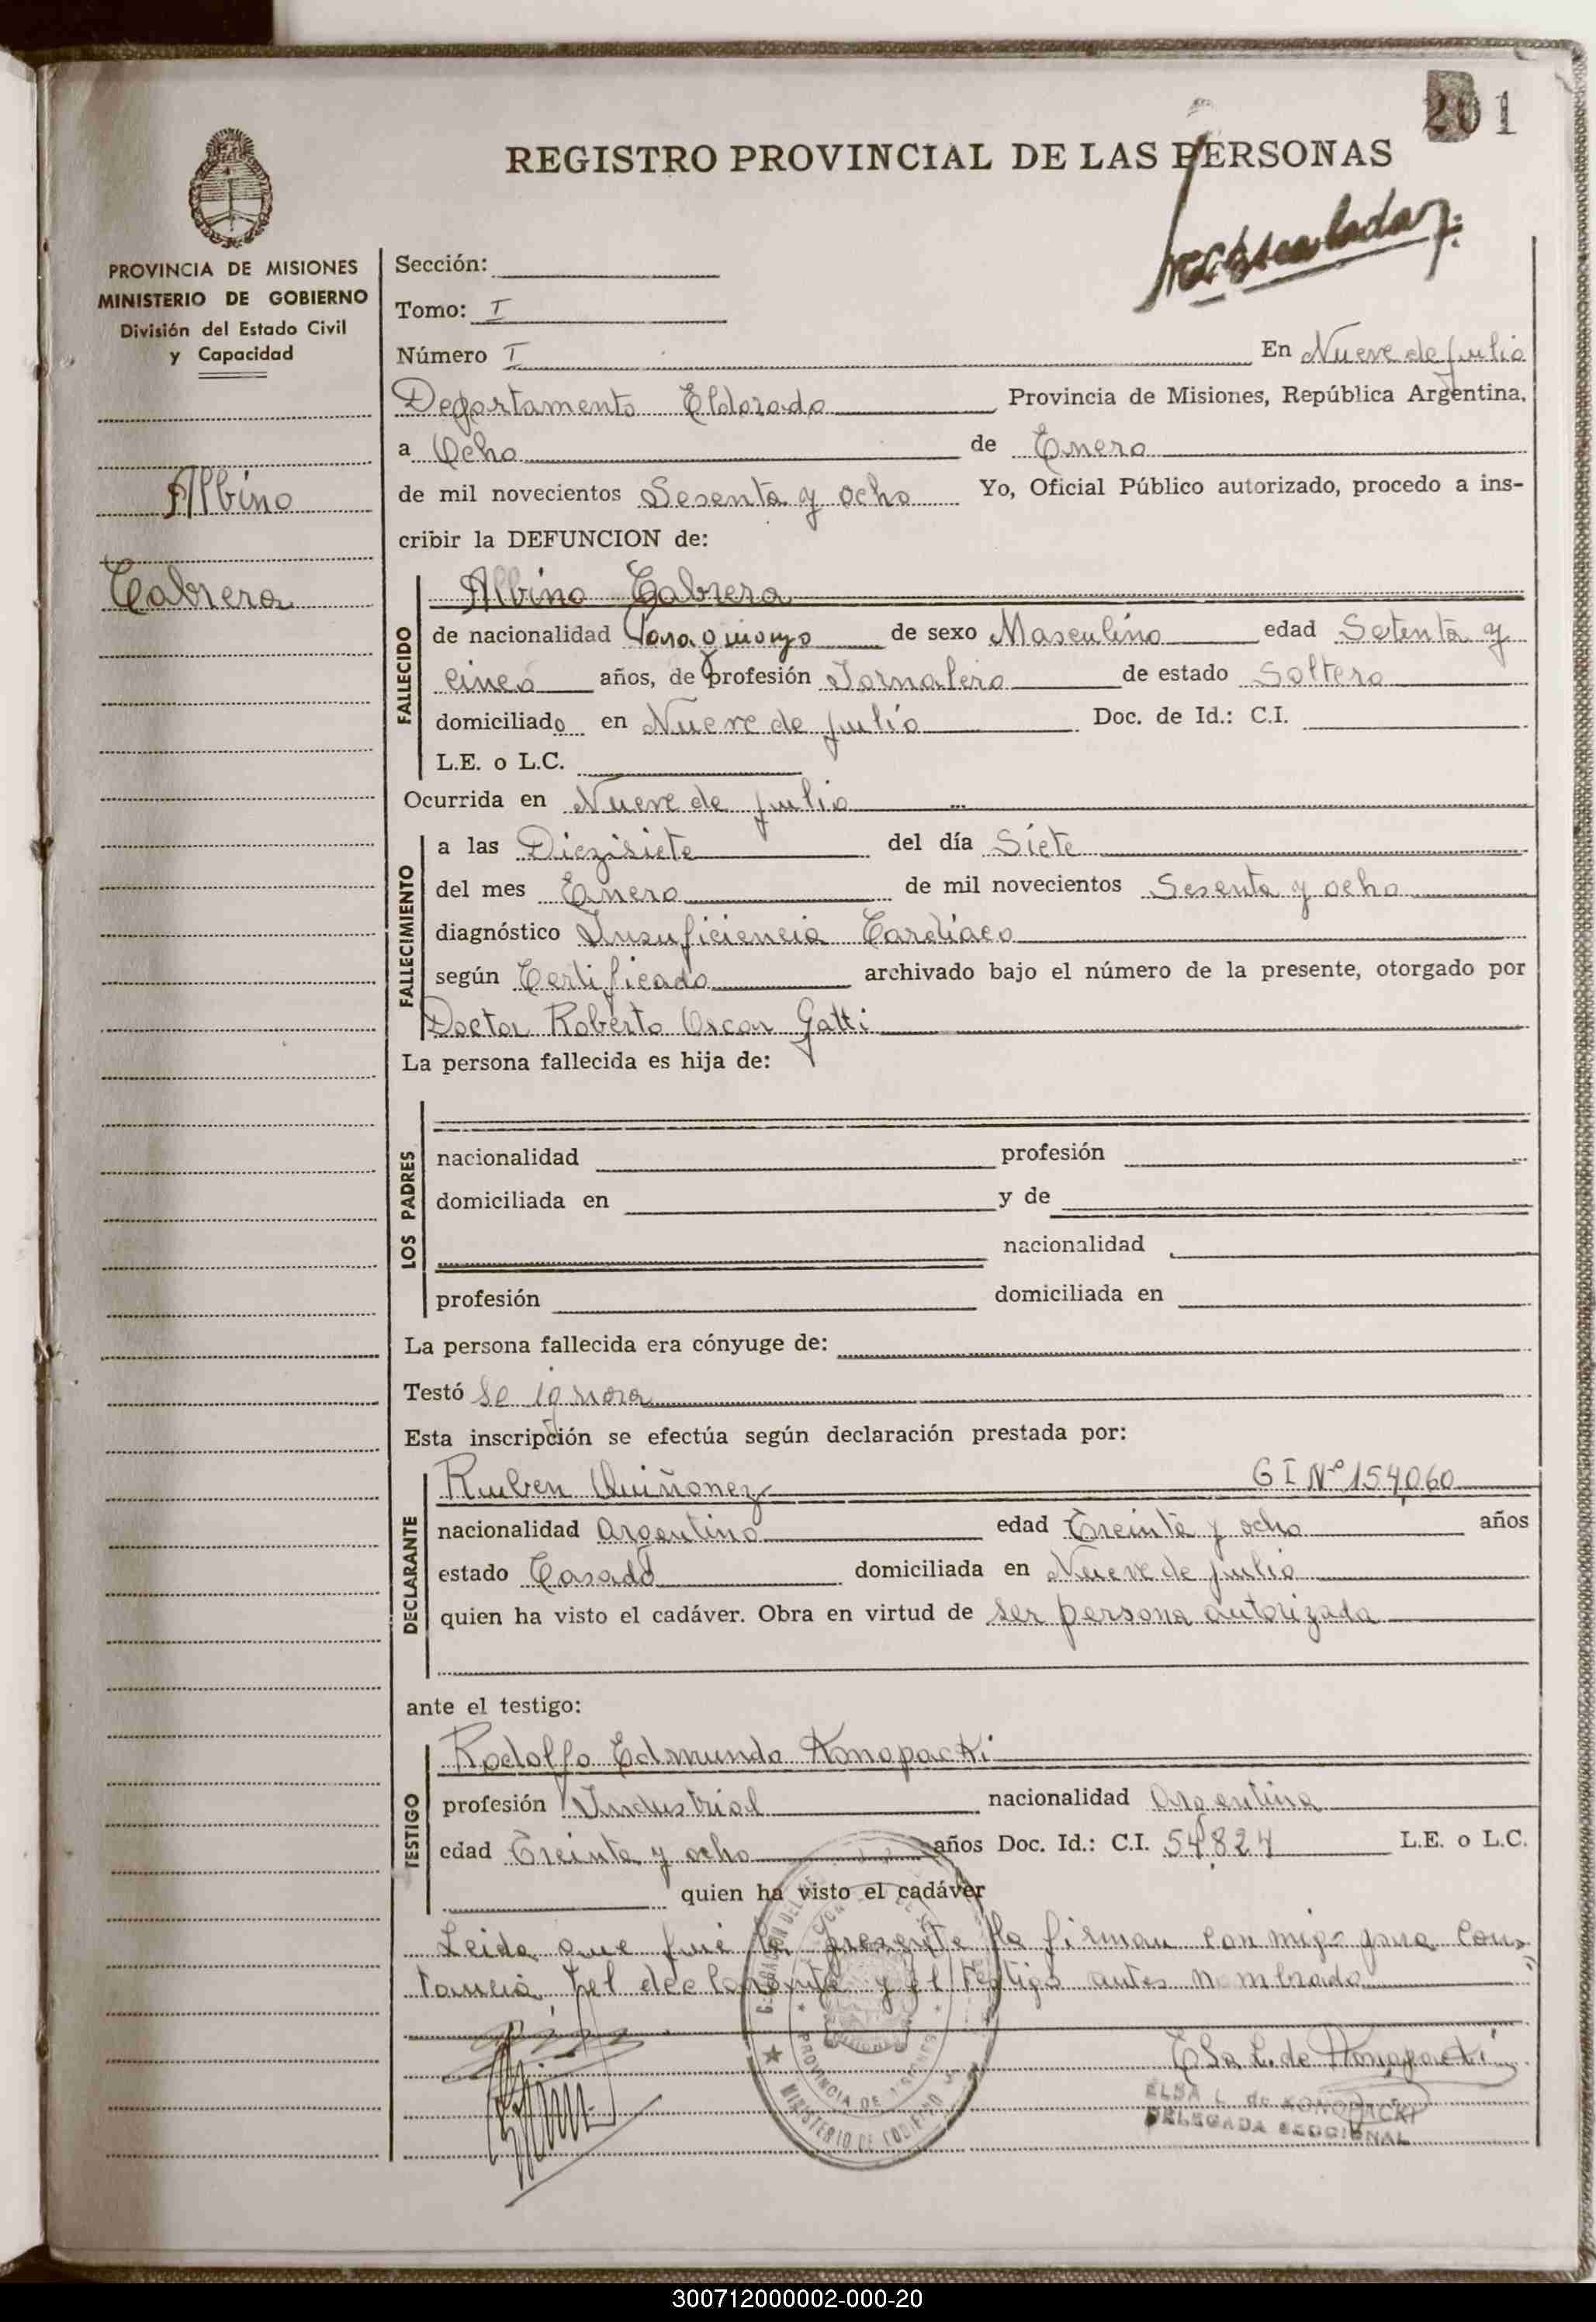 201
REGISTRO PROVINCIAL DE LAS PERSONAS
PROVINCIA DE MISIONES
MINISTERIO DE GOBIERNO
División del Estado Civil
y Capacidad
Albino
Cabrera
Sección:
Tomo: I
Número I En Nueve de julio
Departamento Eldorado Provincia de Misiones, República Argentina,
a Ocho de Enero
de mil novecientos Sesenta y ocho Yo, Oficial Público autorizado, procedo a ins-
cribir la DEFUNCION de:
FALLECIDO
Albino Cabrera
de nacionalidad Paraguayo de sexo Masculino edad Setenta y
cinco años, de profesión Jornalero de estado Soltero
domiciliado en Nueve de julio Doc. de Id.: C.I.
L.E. o L.C.
Ocurrida en Nueve de julio
FALLECIMIENTO
a las Diezisiete del día Siete
del mes Enero de mil novecientos Sesenta y ocho
diagnóstico Insuficiencia Cardiaco
según Certificado archivado bajo el número de la presente, otorgado por
Doctor Roberto Oscar Gatti
La persona fallecida es hija de:
LOS PADRES
nacionalidad profesión
domiciliada en y de
nacionalidad
profesión domiciliada en
La persona fallecida era cónyuge de:
Testó se ignora
Esta inscripción se efectúa según declaración prestada por:
DECLARANTE
Ruben Quiñonez C I Nº 154,060
nacionalidad Argentino edad Treinta y ocho años
estado Casado domiciliada en Nueve de julio
quien ha visto el cadáver. Obra en virtud de ser persona autorizada
ante el testigo:
TESTIGO
Rodolfo Edmundo Konopacki
profesión Industrial nacionalidad Argentina
edad Treinta y ocho años Doc. Id.: C.I. 54,824 L.E. o L.C.
quien ha visto el cadáver
Leida que fué la presente la firman conmigo para Cons
tancia, del declarante y el testigo antes nombrado
PROVINCIA DE MISIONES
MINISTERIO DE GOBIERNO
Elsa L. de Konopacki
ELSA L. de KONOPACKI
DELEGADA SECCIONAL
300712000002-000-20